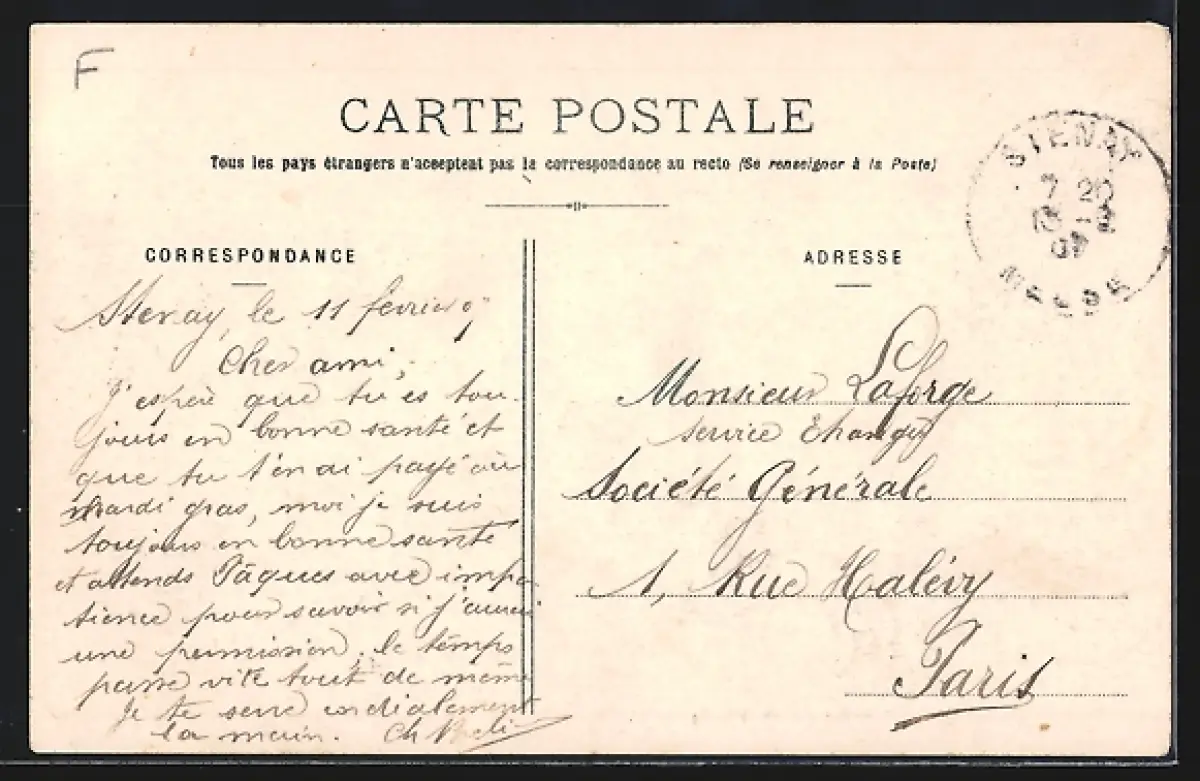 F
CARTE POSTALE
Tous les pays étrangers n'acceptent pas la correspondance au recto (Se renseigner à la Poste)
CORRESPONDANCE
Stenay, le 11 février
Cher ami,
J'espère que tu es tou-
jours en bonne santé et
que tu t'en ai payé au
mardi gras, moi je suis
toujours en bonne santé
et attends Pâques avec impa
tience pour savoir si j'aurai
une permission, le temps
passe vite tout de même
Je te serre cordialement
la main. Ch
ADRESSE
Monsieur Laforge
Service
Société Générale
1, Rue Halévy
Paris
STENAY
7 20
MEUSE